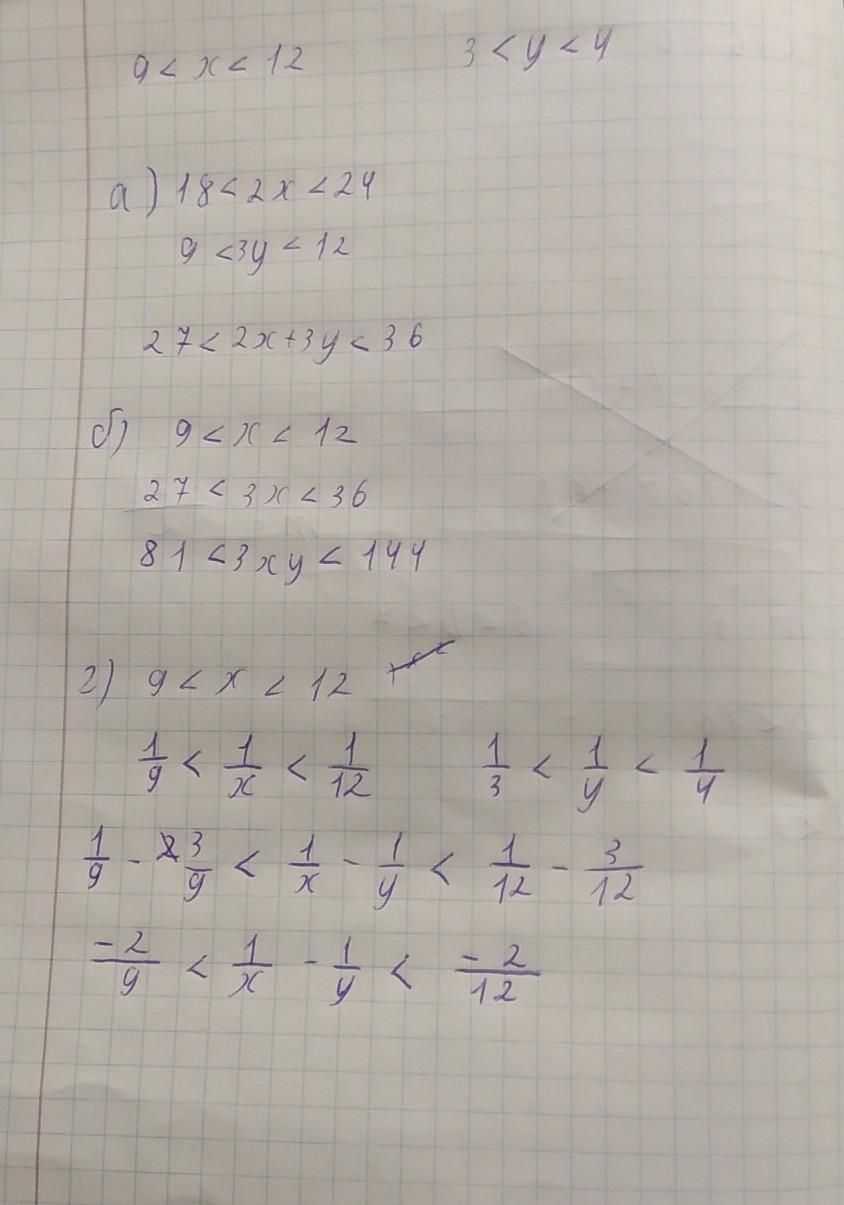 9 < x < 12 3 < y < 4
а) 18 < 2x < 24
9 < 3y < 12
27 < 2x + 3y < 36
б) 9 < x < 12
27 < 3x < 36
81 < 3xy < 144
г) 9 < x < 12
1/9 < 1/x < 1/12 1/3 < 1/y < 1/4
1/9 - 3/9 < 1/x - 1/y < 1/12 - 3/12
-2/9 < 1/x - 1/y < -2/12